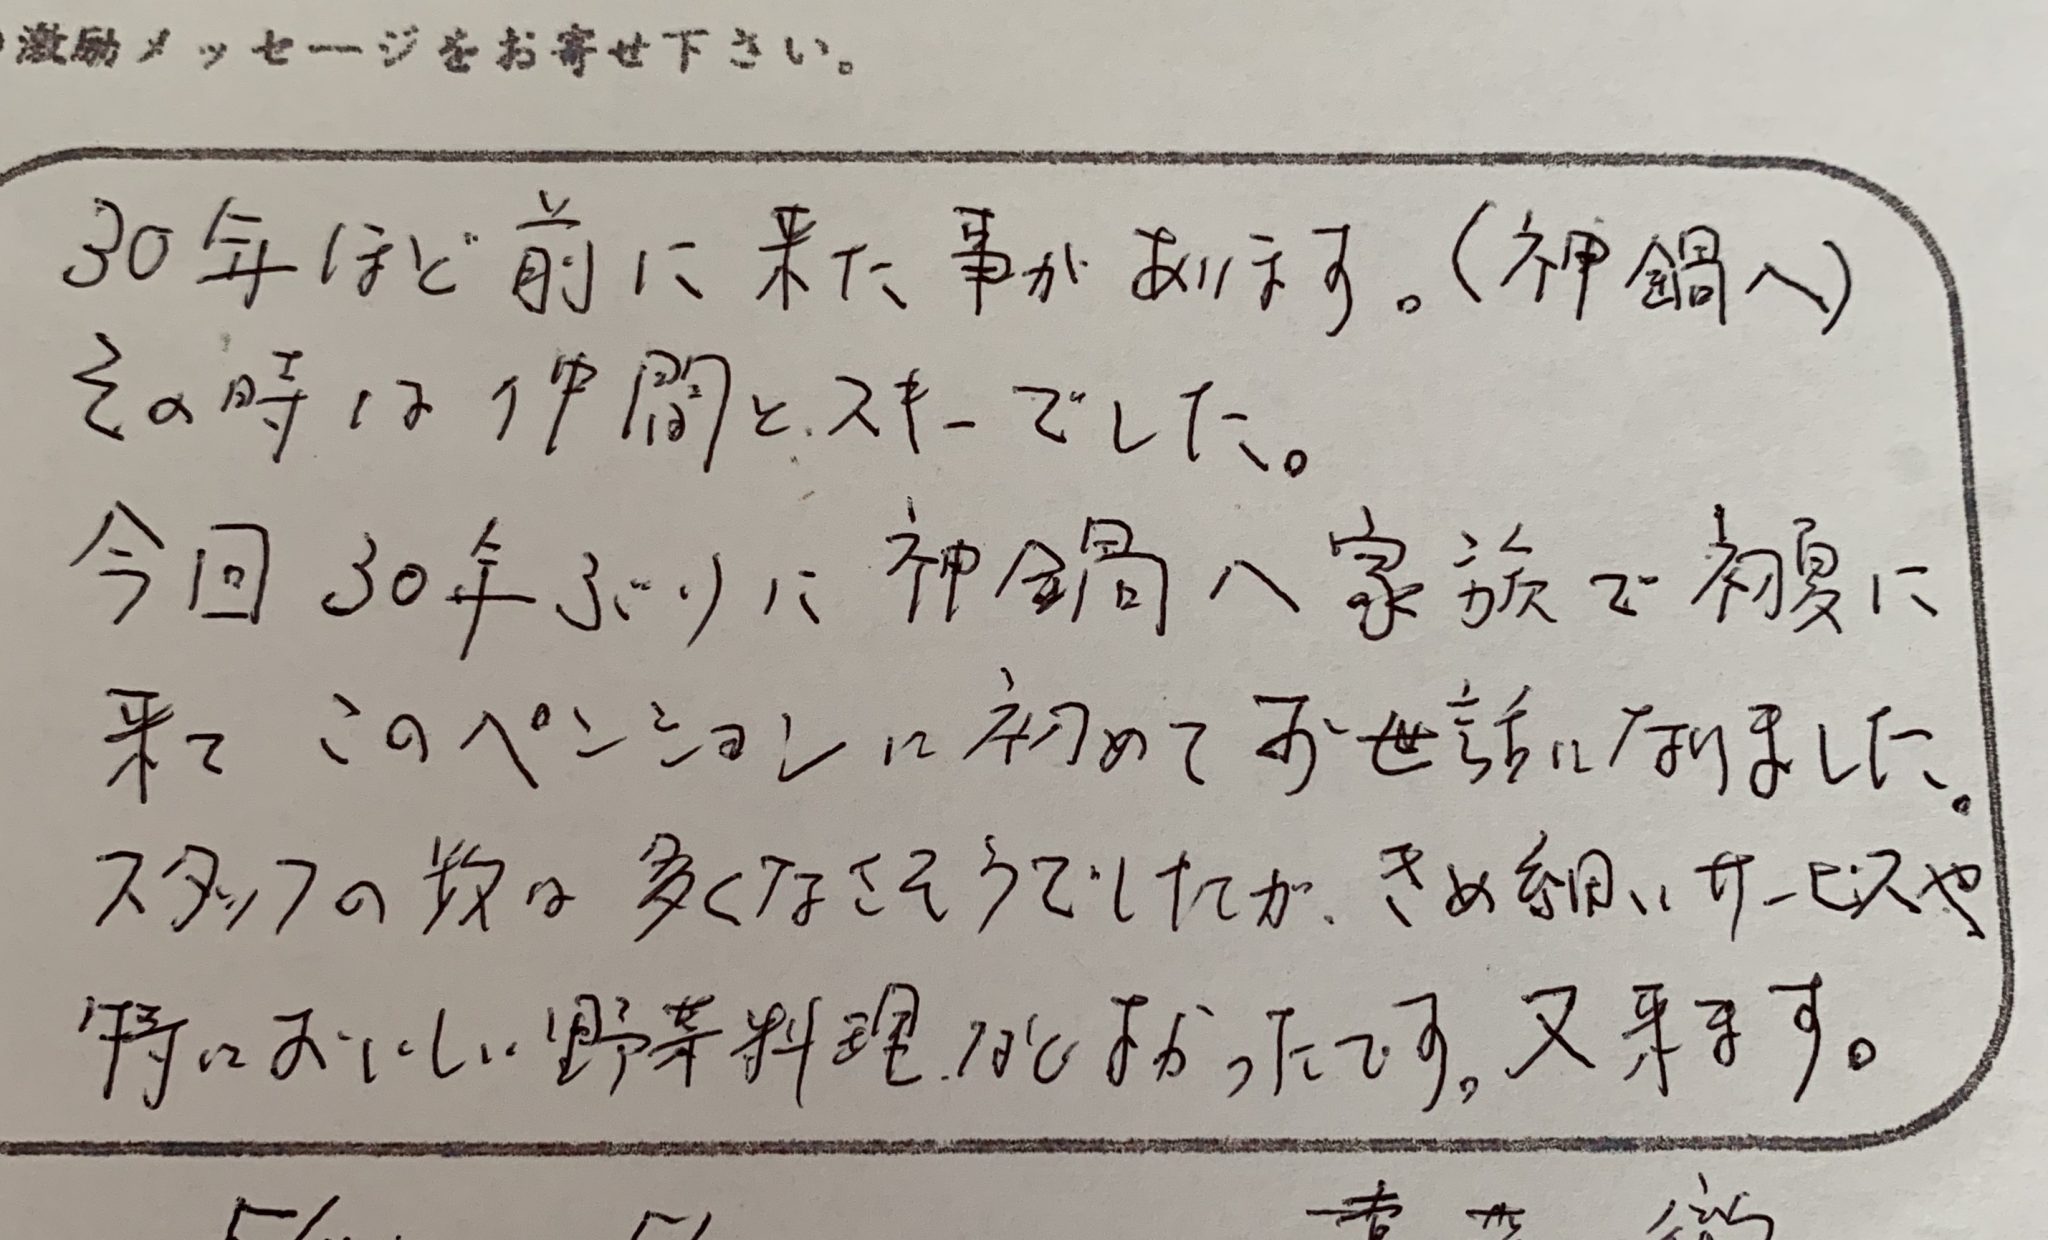 激励メッセージをお寄せ下さい。
30年ほど前に来た事があります。(神鍋へ)
その時は仲間とスキーでした。
今回30年ぶりに神鍋へ家族で初夏に
来てこのペンションに初めてお世話になりました。
スタッフの数は多くなさそうでしたが、きめ細いサービスや
特においしい野菜料理などよかったです。又来ます。